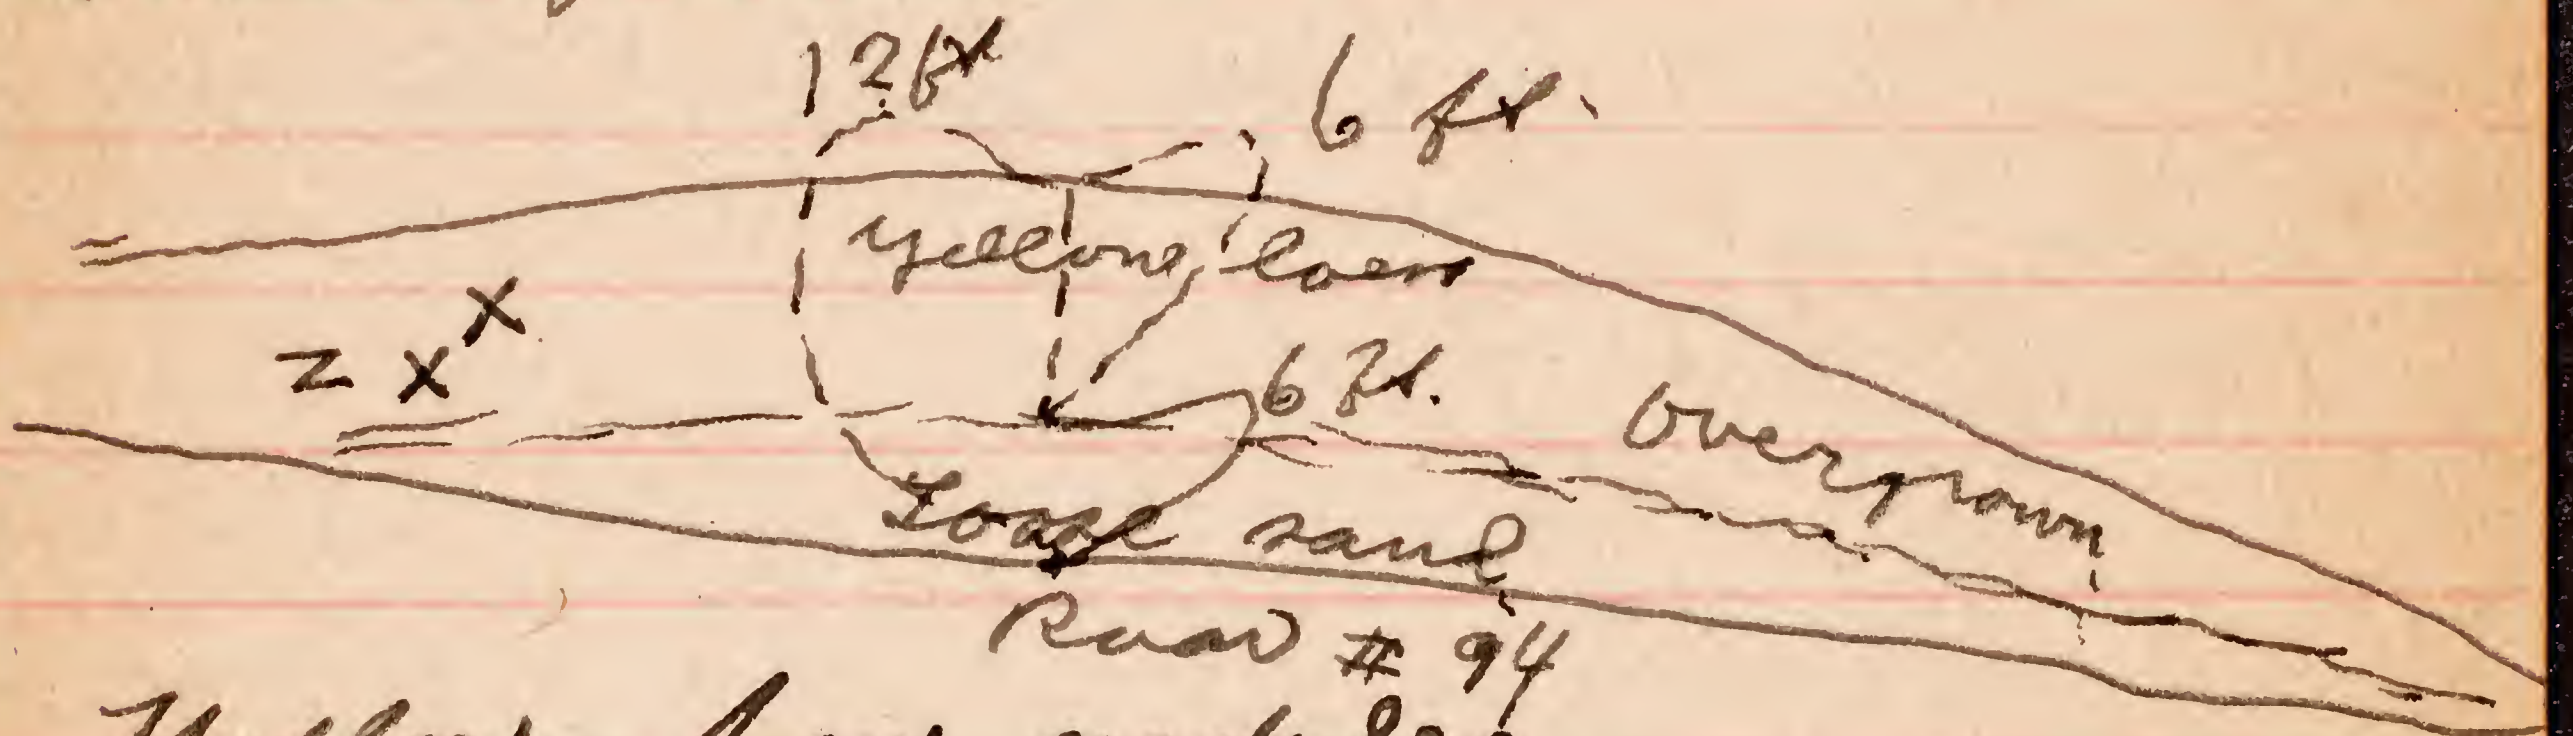 12 ft
6 ft.
yellow loess
z x x
6 ft.
Overgrown
Loose sand
Road # 94
Yellow